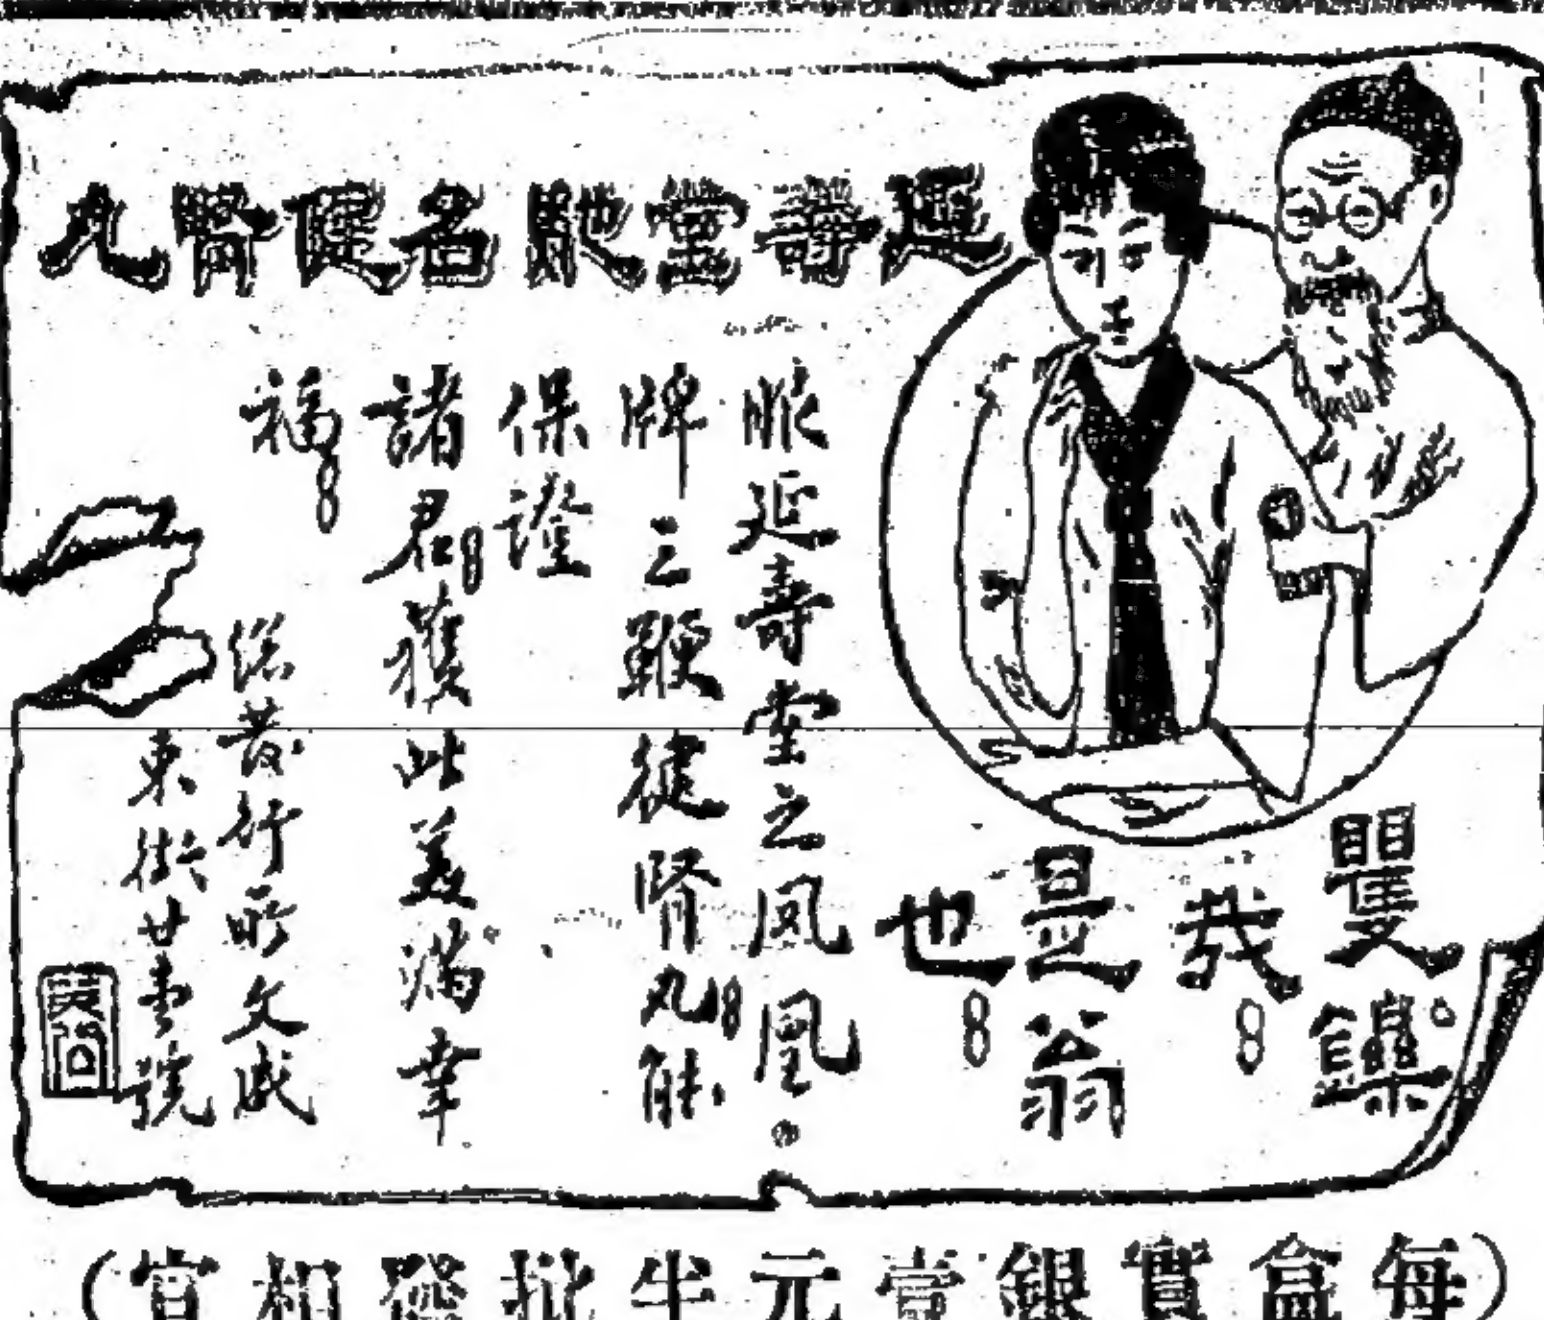 延壽堂馳名健腎丸
矍鑠
哉
是翁
也
服延壽堂之鳳凰
牌三鞭健腎丸能
保證
諸君獲此美滿幸
福
總發行所文咸
東街廿壹號
(每盒實銀壹元半批發相宜)